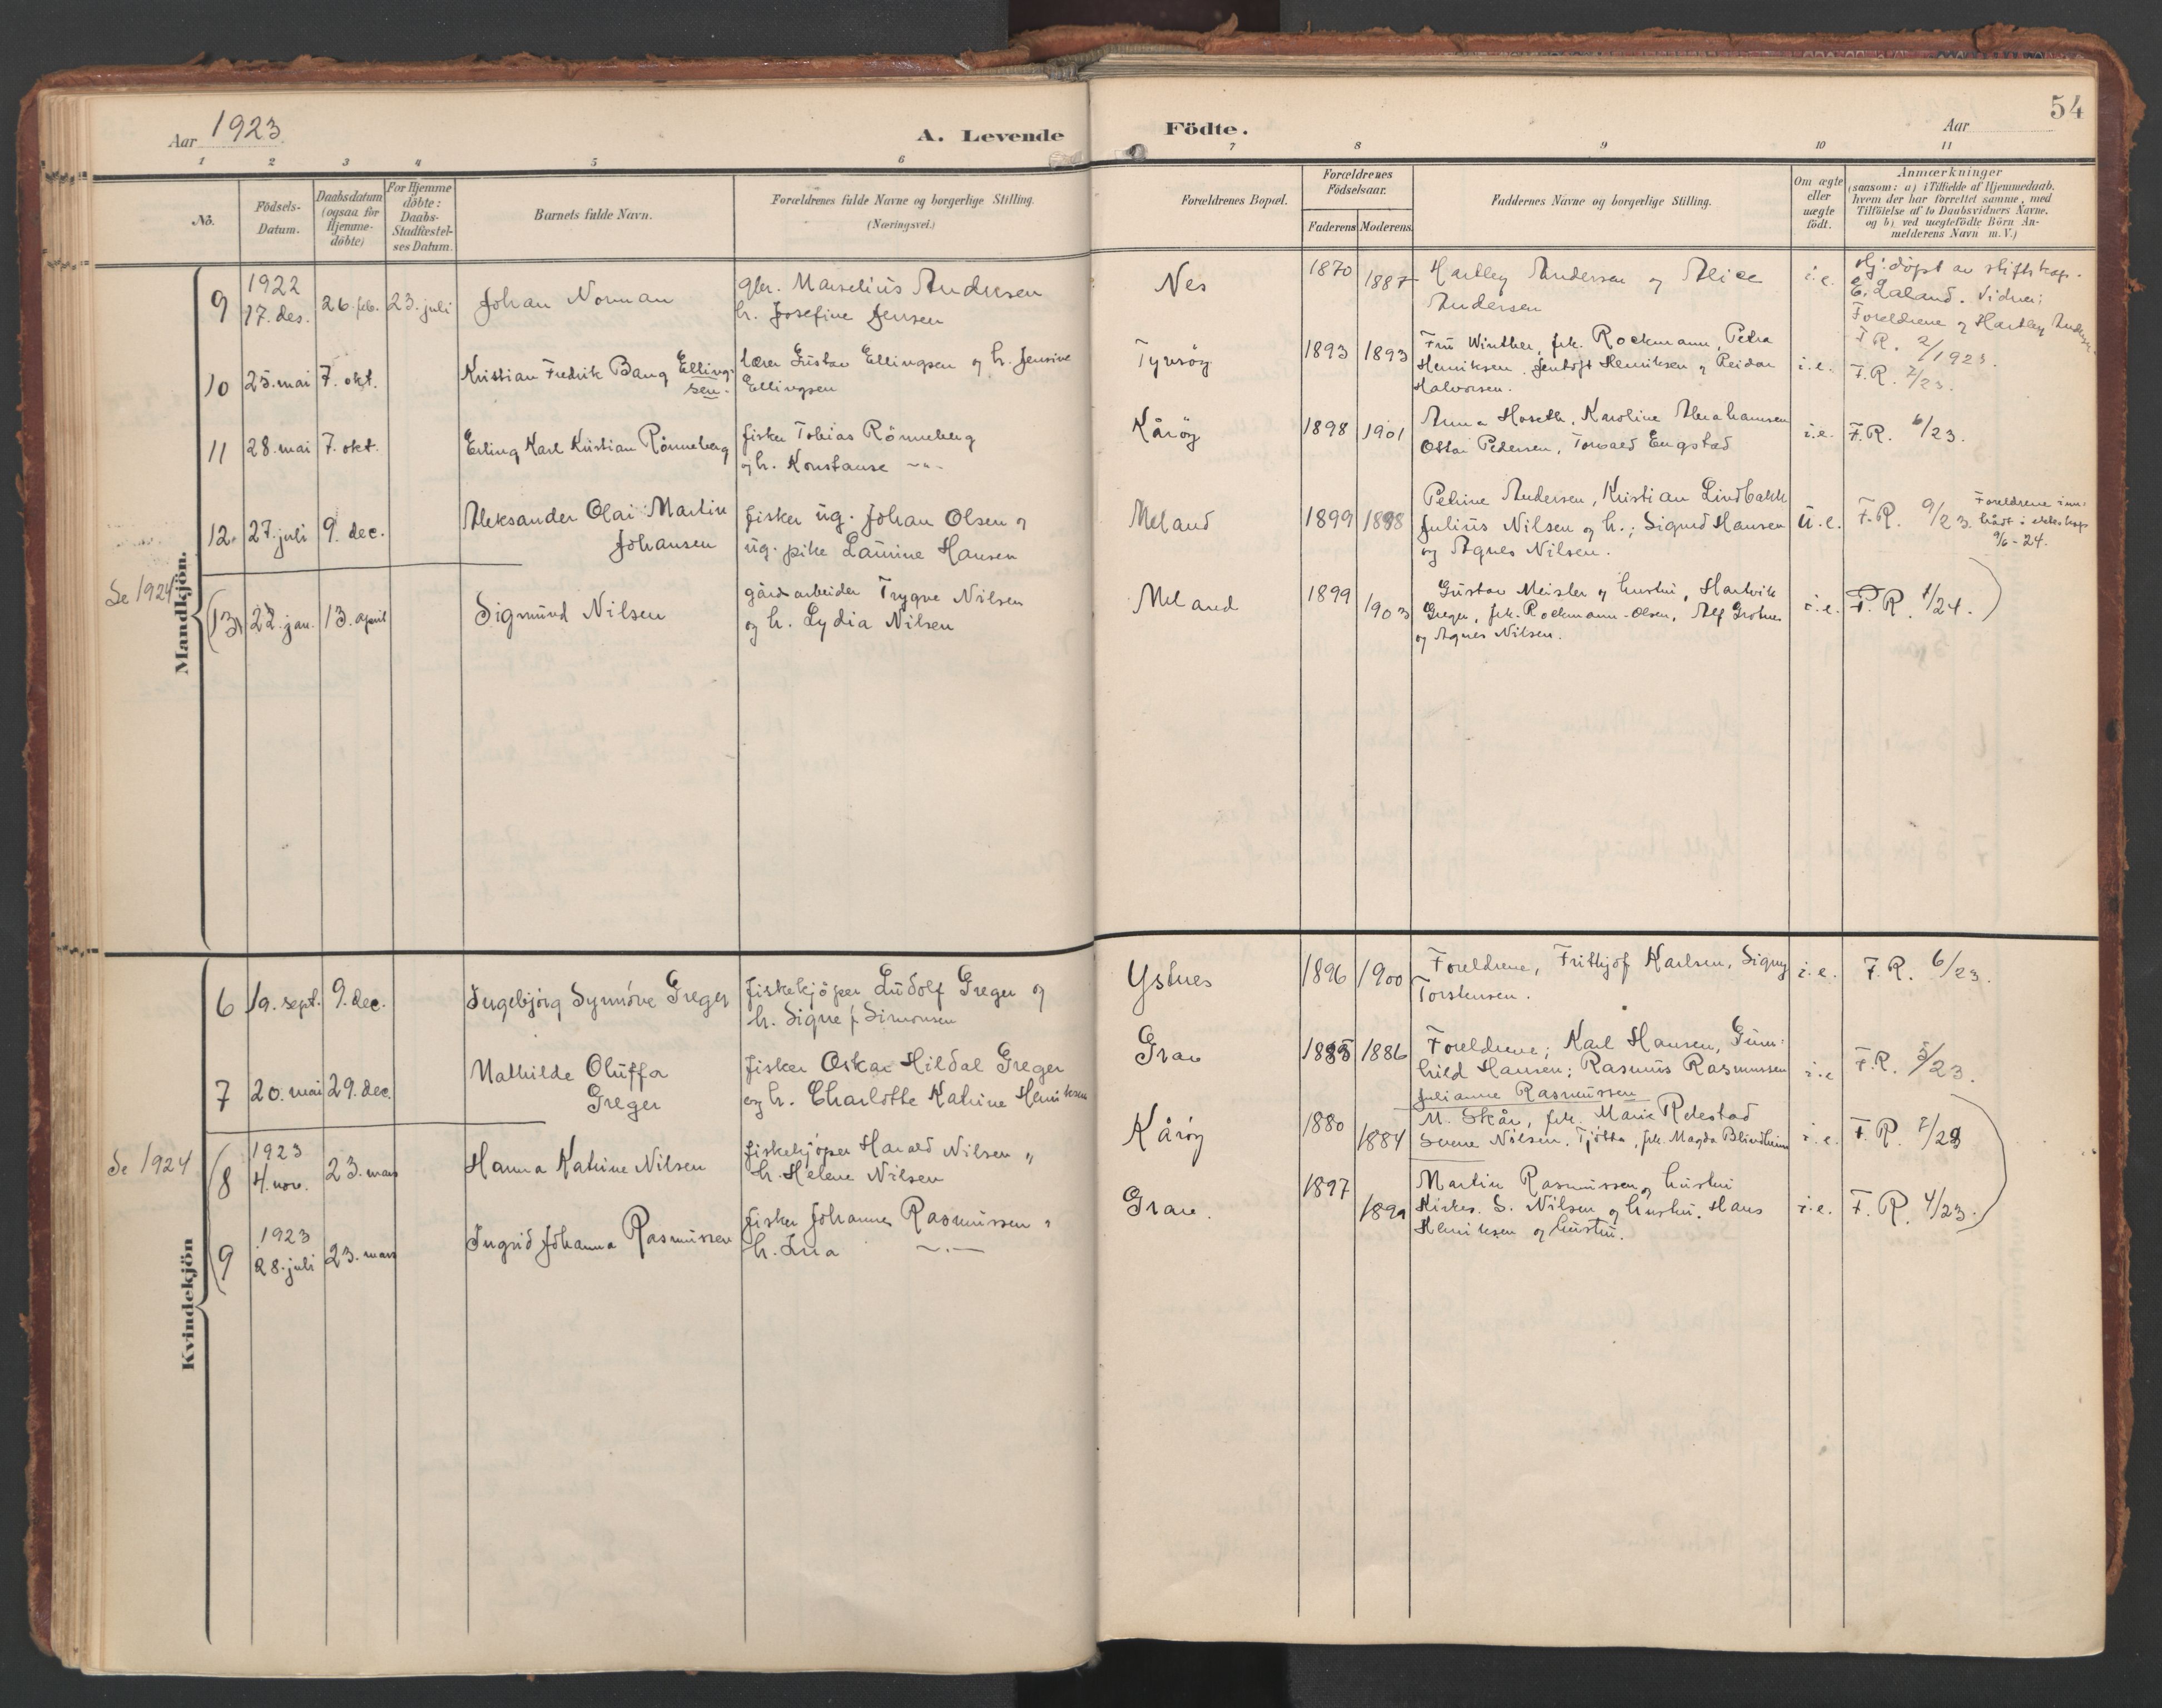 Aar 1923
A. Levende Födte.
Aar
54
1 2 3 4 5 6 7 8 9 10 11
No.
Födsels-
Datum.
Daabsdatum
(ogsaa for
Hjemme-
döbte)
For Hjemme
döbte:
Daabs-
Stadfæstel-
ses Datum.
Barnets fulde Navn.
Forældrenes fulde Navne og borgerlige Stilling.
(Næringsvei.)
Forældrenes Bopæl.
Forældrenes
Födselsaar.
Faderens Moderens
Faddernes Navne og borgerlige Stilling.
Om ægte
eller
uægte
födt.
Anmærkninger
(saasom: a) i Tilfælde af Hjemmedaab.
hvem der har forrettet samme, med
Tilföielse af to Daabsvidners Navne.
og b) ved uægtefödte Börn An-
melderens Navn m.V.)
Mandkjön.
9
1922
17. des.
26. feb.
23. juli
Johan Norman
gbr. Marselius Andresen
h. Josefine Jensen
Nes
1870
1887
Hartley Andersen og Alice
Andersen
i.e.
Hj. döpt av stiftskap.
E. Laland. Vidner:
Foreldrene og Hartley
F.R. 2/1923.
10
25. mai
7. okt.
Kristian Fredrik Bang Elling-
sen.
lærer Gustav Ellingsen og h. Jensine
Ellingsen
Tyvsöy
1893
1893
Fru Winther, frk. Rockmann, Petra
Henriksen, Henriksen og Reidar
Halvorsen.
i.e.
F.R. 7/23.
11
28. mai
7. okt.
Erling Karl Kristian Rönneberg
fisker Tobias Rönneberg
og h. Konstanse -"-
Kåröy
1898
1901
Anna Hoseth, Karoline Abrahamsen
Otto Pedersen, Torvald Engstad
i.e.
F.R. 6/23.
12.
27. juli
9. dec.
Aleksander Olai Martin
Johansen
fisker ug. Johan Olsen og
ug. pike Laurine Hansen
Meland
1899
1898
Petrine Andersen, Kristian Lindbakk
Julius Nilsen og h.; Sigurd Hansen
og Agnes Nilsen.
u.e.
F.R. 9/23.
Foreldrene inn-
trådt i ektesk
9/6-24.
Se 1924
(13)
22. jan.
13. april
Sigmund Nilsen
gårdsarbeider Trygve Nilsen
og h. Lydia Nilsen
Meland
1899
1903
Gustav Meisler og hustru, Hartvik
Greger, frk. Rockmann-Olsen, Alf Grotnes
og Agnes Nilsen.
i.e.
F.R. 1/24.
Kvindekjön
6
19. sept.
9. dec.
Ingebjörg Synnöve Greger
fiskekjöper Ludolf Greger og
h. Signe f. Simonsen
Ystnes
1896
1900
Foreldrene, Frithjof Karlsen, Signy
Torstensen.
i.e.
F.R. 6/23.
7
20. mai
29. dec.
Mathilde Oluffa
Greger
fisker Oskar Hildal Greger
og h. Charlotte Katrine Henriksen
Grav
1885
1886
Foreldrene; Karl Hansen, Gun-
hild Hansen; Rasmus Rasmussen
Julianne Rasmussen
i.e
F.R. 5/23.
Se 1924
(8
1923
4. nov.
23. mars
Hanna Katrine Nilsen
fiskekjöper Harald Nilsen "
h. Helene Nilsen
Kåröy
1880
1884
M. Skår, frk. Marie Relestad
Sverre Nilsen, Tjötta, frk. Magda Blindheim
i.e.
F.R. 7/23
(9
1923
28. juli
23. mars
Ingrid Johanna Rasmussen
fisker Johannes Rasmussen "
h. Lna
Grav.
1897
1899
Martin Rasmussen og hustru
Kirkes. S. Nilsen og hustru. Hans
Henriksen og hustru.
i.e.
F.R. 4/23.